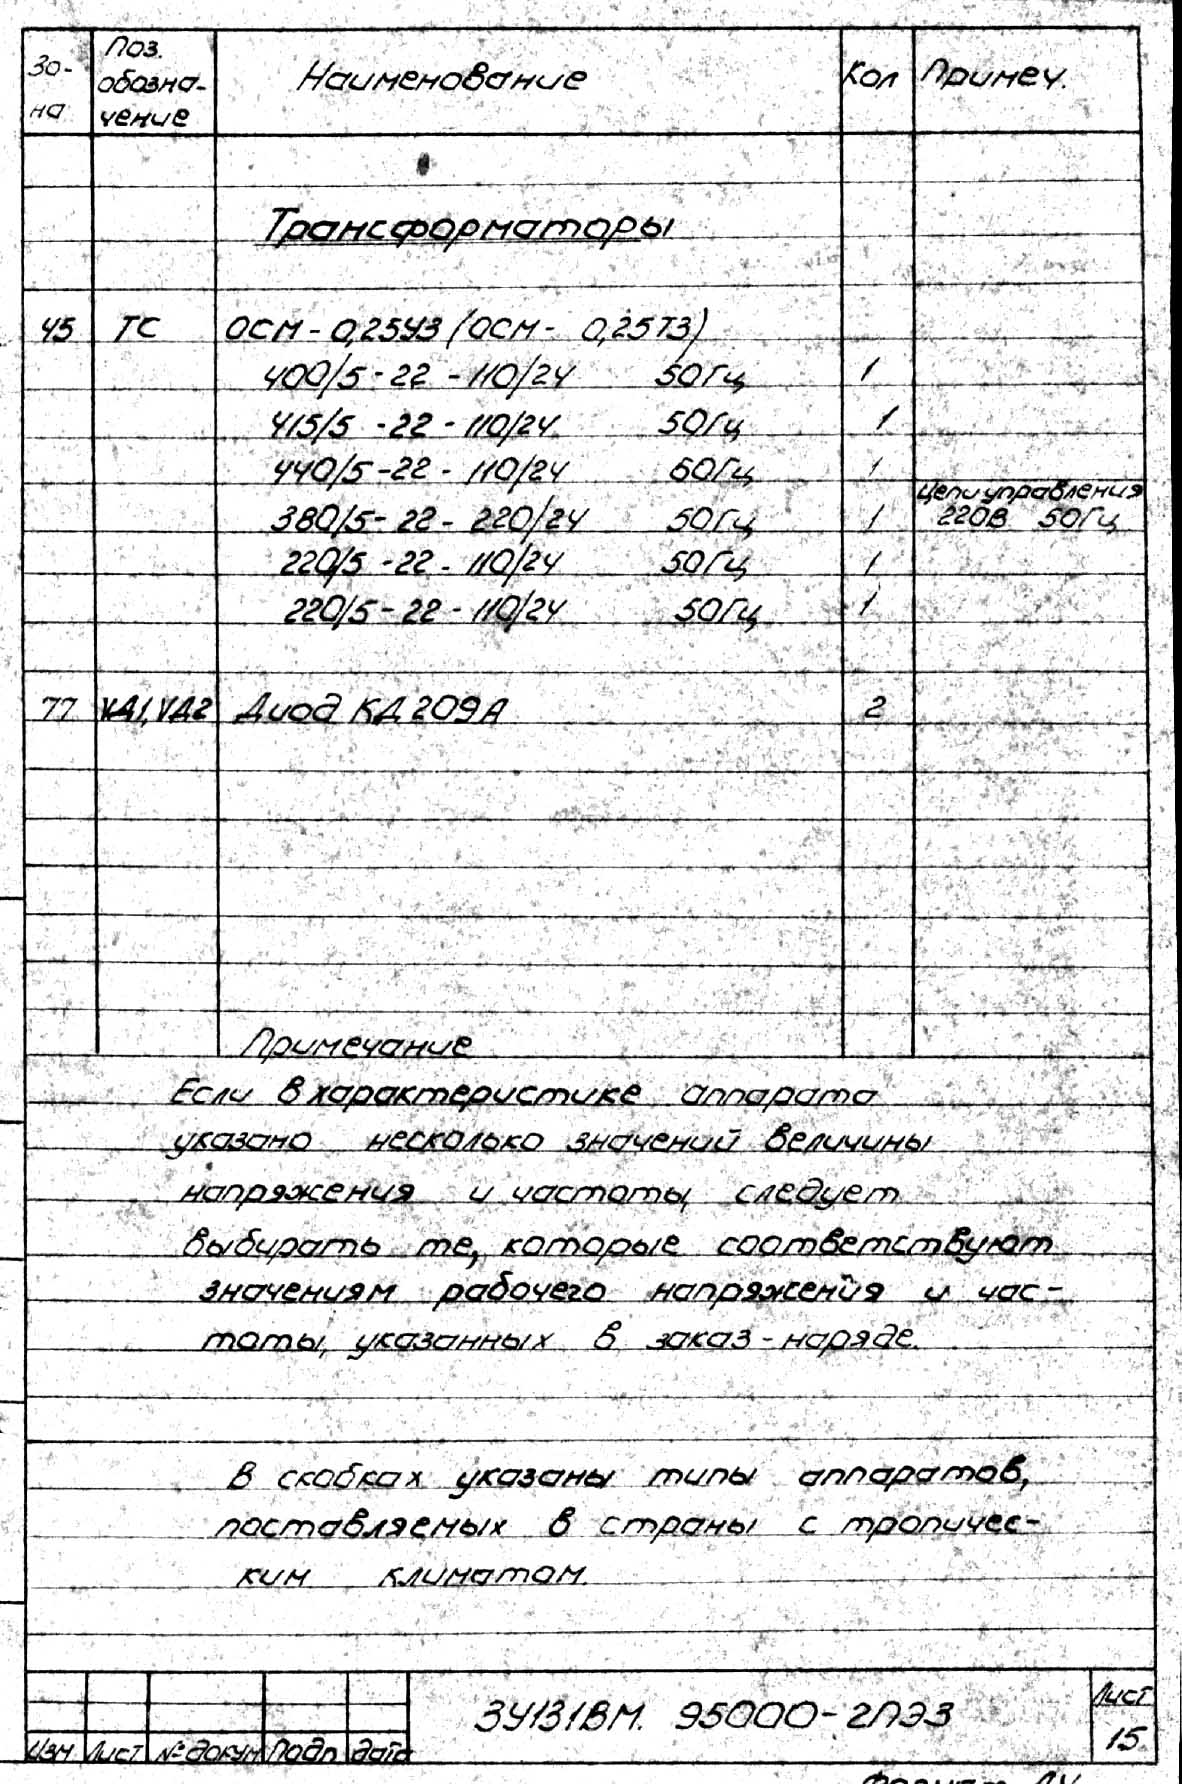 Зо-
на
Поз.
обозна-
чение
Наименование
Кол
Примеч.
Трансформаторы
45 ТС ОСМ - 0,25У3 (ОСМ - 0,25Т3)
400/5 - 22 - 110/24 50Гц 1
415/5 - 22 - 110/24 50Гц 1
440/5 - 22 - 110/24 60Гц 1
Цепи управления
380/5 - 22 - 220/24 50Гц 1 220В 50Гц
220/5 - 22 - 110/24 50Гц 1
220/5 - 22 - 110/24 50Гц 1
77 VД1, VД2 Диод КД209А 2
Примечание
Если в характеристике аппарата
указано несколько значений величины
напряжения и частоты, следует
выбирать те, которые соответствуют
значениям рабочего напряжения и час-
тоты, указанных в заказ-наряде.
В скобках указаны типы аппаратов,
поставляемых в страны с тропичес-
ким климатом.
3У131ВМ. 95000-2ПЭ3
Лист
15
Изм Лист № докум Подп дата